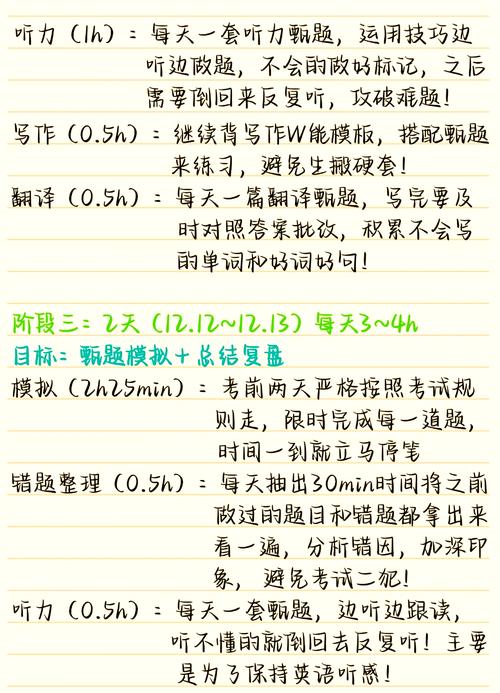 听力（1h）：每天一套听力甄题，运用技巧边
听边做题，不会的做好标记，之后
需要倒回来反复听，攻破难题！
写作（0.5h）：继续背写作W能模板，搭配甄题
来练习，避免生搬硬套！
翻译（0.5h）：每天一篇翻译甄题，写完要及
时对照答案批改，积累不会写
的单词和好词好句！
阶段三：2天（12.12~12.13）每天3~4h
目标：甄题模拟＋总结复盘
模拟（2h25min）：考前两天严格按照考试规
则走，限时完成每一道题，
时间一到就立马停笔
错题整理（0.5h）：每天抽出30min时间将之前
做过的题目和错题都拿出来
看一遍，分析错因，加深印
象，避免考试二犯！
听力（0.5h）：每天一套甄题，边听边跟读，
听不懂的就倒回去反复听！主要
是为了保持英语听感！